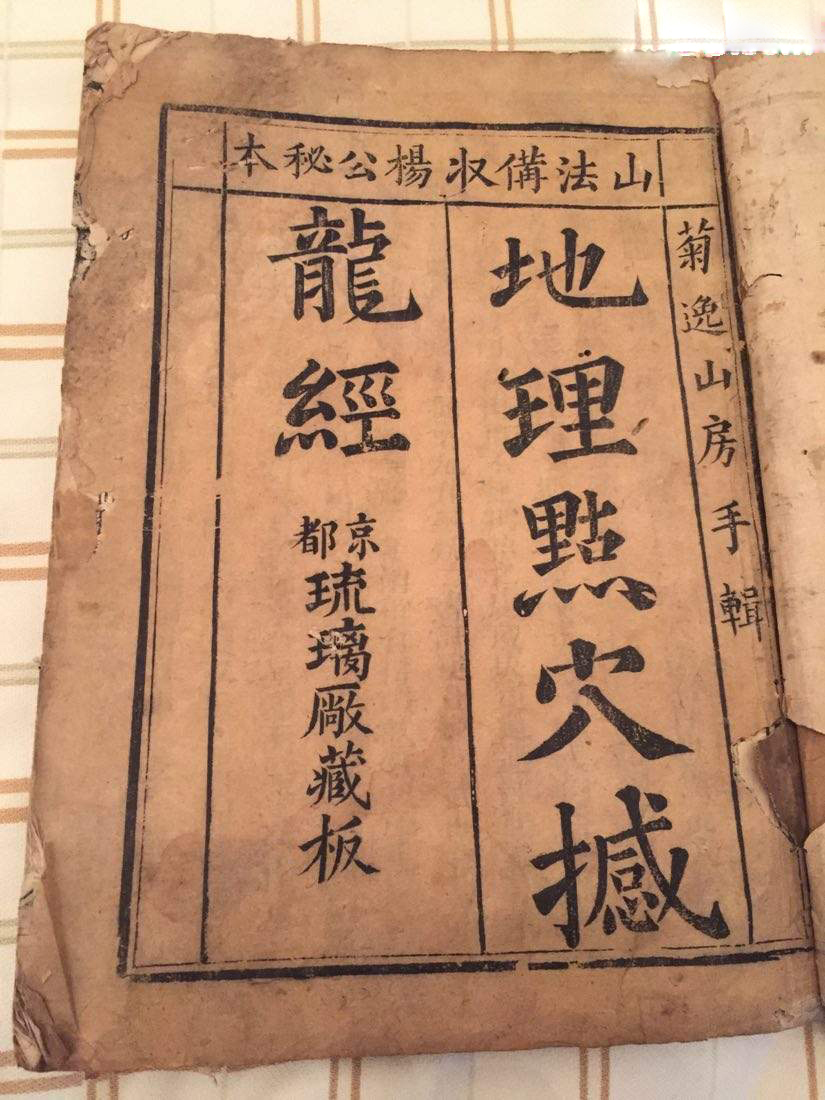 山法備収楊公秘本
菊逸山房手輯
地理點穴撼
龍經
京都
琉璃廠藏板